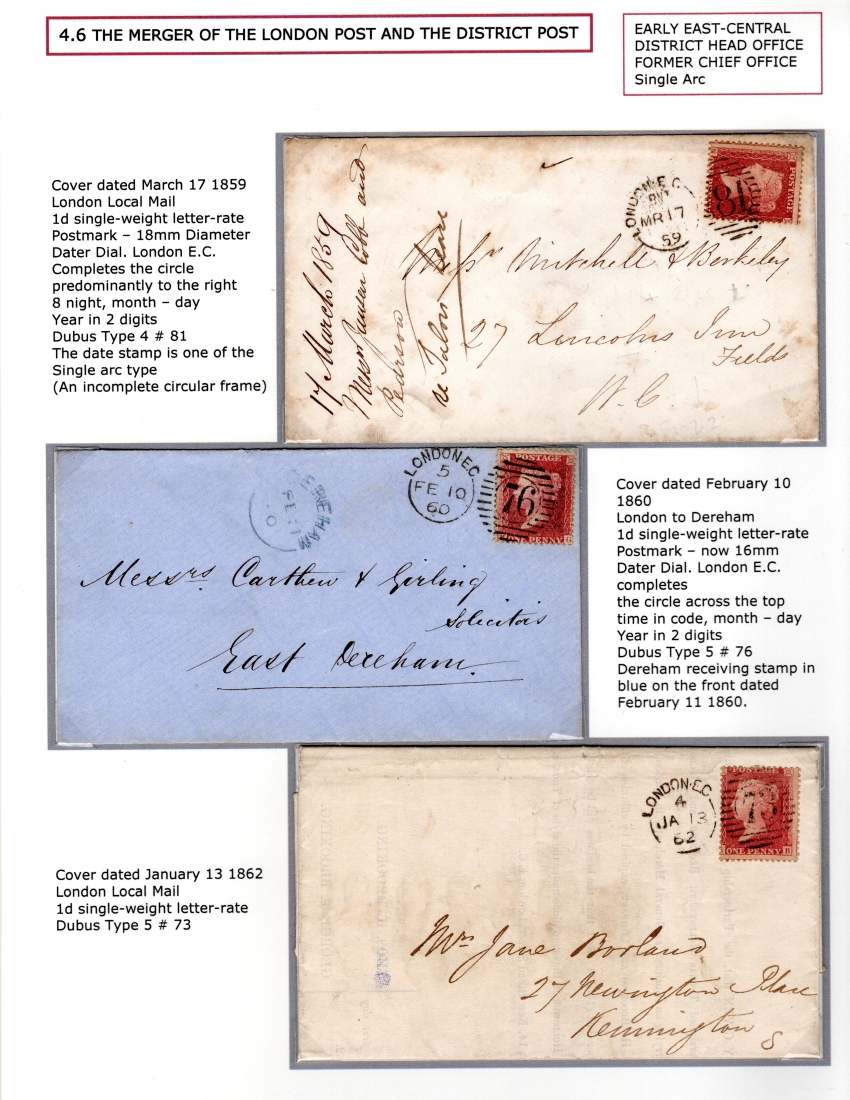 4.6 THE MERGER OF THE LONDON POST AND THE DISTRICT POST
EARLY EAST-CENTRAL
DISTRICT HEAD OFFICE
FORMER CHIEF OFFICE
Single Arc
Cover dated March 17 1859
London Local Mail
1d single-weight letter-rate
Postmark – 18mm Diameter
Dater Dial. London E.C.
Completes the circle
predominantly to the right
8 night, month – day
Year in 2 digits
Dubus Type 4 # 81
The date stamp is one of the
Single arc type
(An incomplete circular frame)
17 March 1859
Messrs Cobb and
Pearson
LONDON·E.C
MR 17
59
81
POSTAGE
Messrs Mitchell & Berkeley
27 Lincolns Inn
Fields
W.C.
LONDON E.C
5
FE 10
60
POSTAGE
76
ONE PENNY
Messrs Carthew & Girling
Solicitors
East Dereham.
Cover dated February 10
1860
London to Dereham
1d single-weight letter-rate
Postmark – now 16mm
Dater Dial. London E.C.
completes
the circle across the top
time in code, month – day
Year in 2 digits
Dubus Type 5 # 76
Dereham receiving stamp in
blue on the front dated
February 11 1860.
Cover dated January 13 1862
London Local Mail
1d single-weight letter-rate
Dubus Type 5 # 73
LONDON·E.C
4
JA 13
62
POSTAGE
73
ONE PENNY
Mrs Jane Borland
27 Newington Place
Kennington